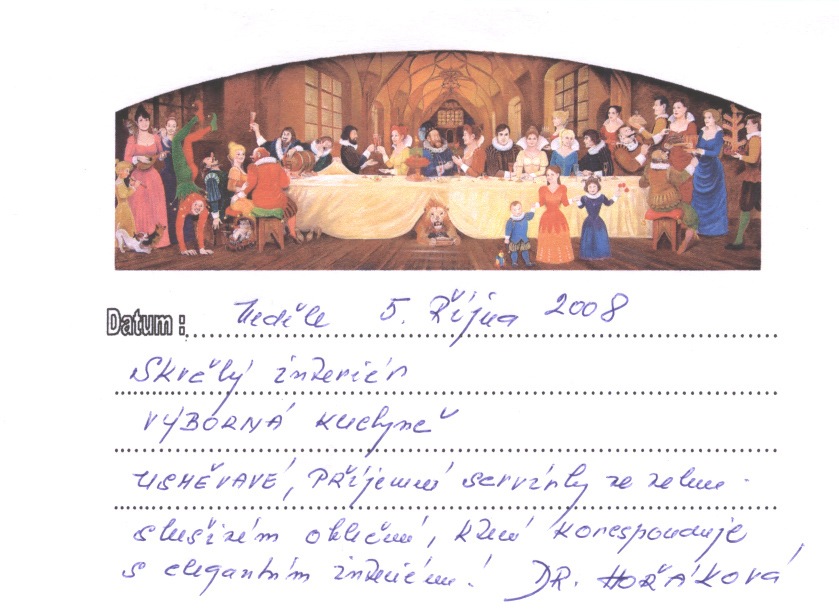 Datum: Neděle 5. Října 2008
Skvělý interiér
VÝBORNÁ kuchyně
USMĚVAVÉ, PŘÍjemné servírky ve velmi
slušivém oblečení, které koresponduje
s elegantním interiérem! DR. HOŘÁKOVÁ